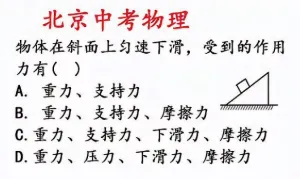 北京中考物理
物体在斜面上匀速下滑，受到的作用
力有(  )
A. 重力、支持力
B. 重力、支持力、摩擦力
C. 重力、支持力、下滑力、摩擦力
D. 重力、压力、下滑力、摩擦力